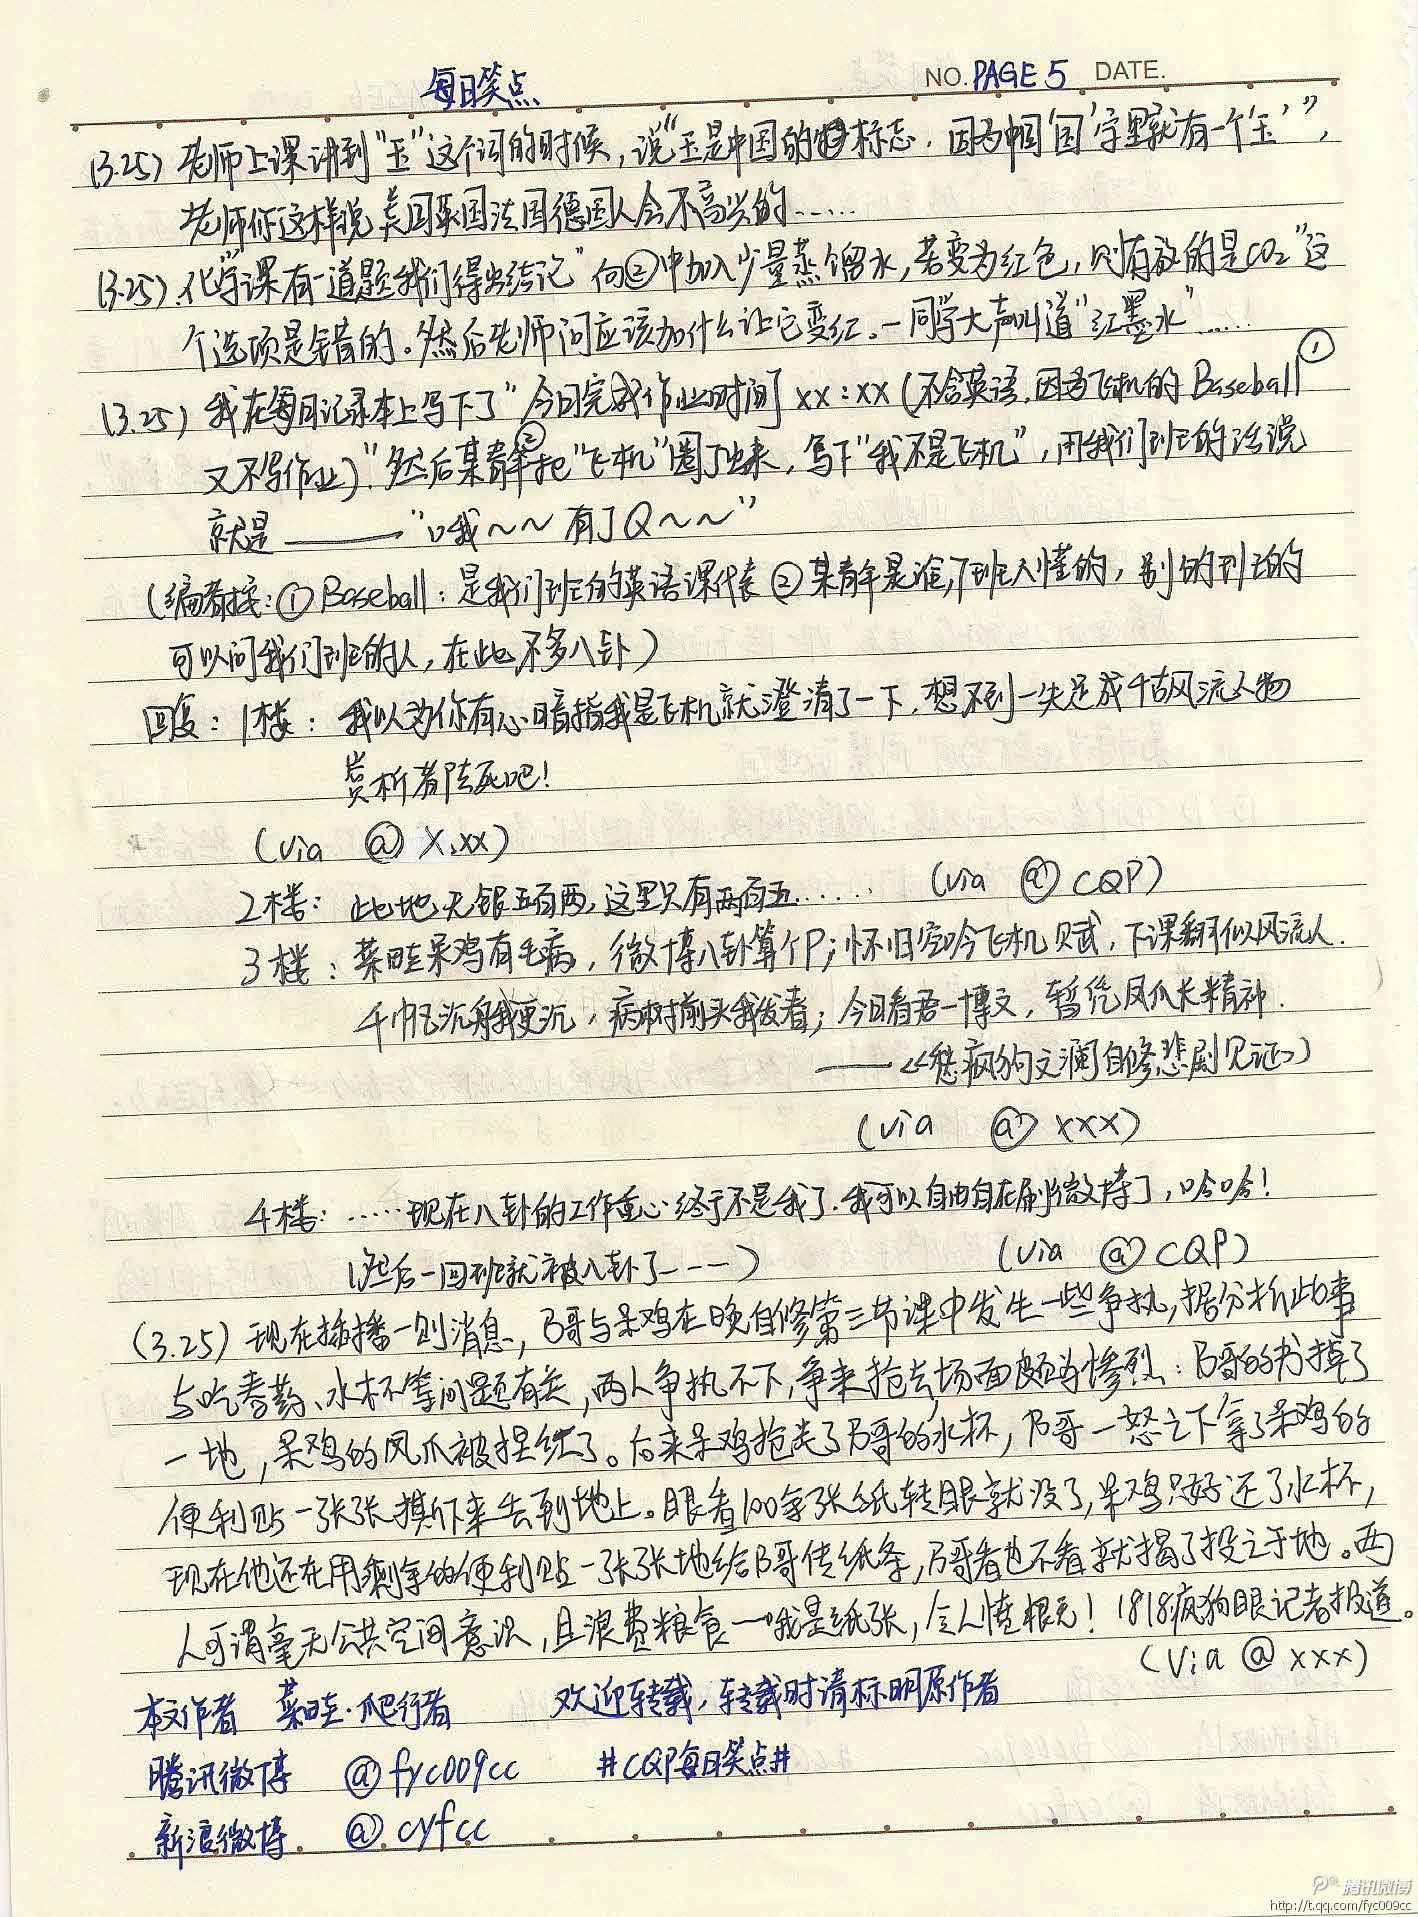 每日笑点
NO. PAGE 5 DATE.
(3.25) 老师上课讲到“玉”这个词的时候，说“玉是中国的标志，因为中国‘国’字里就有一个‘玉’”，
老师你这样说美国英国法国德国人会不高兴的……
(3.25) 化学课有一道题我们得出结论“向②中加入少量蒸馏水，若变为红色，则有放的是CO2”这
个选项是错的。然后老师问应该加什么让它变红。一同学大声叫道“红墨水”……
(3.25) 我在每日记录本上写下了“今日完成作业时间 xx：xx (不含英语，因为飞机的Baseball①
又不写作业)”然后某青年②把“飞机”圈了出来，写下“我不是飞机”，用我们班的话说
就是——“哦～～有了Q～～”
(编者按：①Baseball：是我们班的英语课代表 ②某青年是谁，7班人懂的，别的班的
可以问我们班的人，在此不多八卦)
回复：1楼：我以为你有心暗指我是飞机就澄清了一下，想不到一失足成千古风流人物
赏析者陆死吧！
(via @ X.xx)
2楼：此地无银五百两，这里只有两百五…… (via @ CQP)
3楼：菜畦呆鸡有毛病，微博八卦算个P；怀旧空吟飞机赋，下课翻似风流人.
千帆沉舟我更沉，病树前头我发春；今日看吾一博文，暂凭凤爪长精神.
——《愁疯狗文澜自修悲剧见证》)
(via @ xxx)
4楼：……现在八卦的工作重心终于不是我了.我可以自由自在刷微博了，哈哈！
(然后一回班就被八卦了---) (via @ CQP)
(3.25) 现在插播一则消息，B哥与呆鸡在晚自修第三节课中发生一些争执，据分析此事
与吃春药、水杯等问题有关，两人争执不下，争来抢去，场面颇为惨烈：B哥的书掉了
一地，呆鸡的凤爪被捏红了。后来呆鸡抢走了B哥的水杯，B哥一怒之下拿了呆鸡的
便利贴一张张撕下来丢到地上。眼看100余张纸转眼就没了，呆鸡只好还了水杯，
现在他还在用剩余的便利贴一张张地给B哥传纸条，B哥看也不看就揭了投之于地。两
人可谓毫无公共空间意识，且浪费粮食—哦是纸张，令人愤恨无！1818疯狗眼记者报道。
(Via @ xxx)
本文作者 菜畦·爬行者 欢迎转载，转载时请标明原作者
腾讯微博 @fyc009cc #CQP每日笑点#
新浪微博 @cyfcc
腾讯微博
http://t.qq.com/fyc009cc